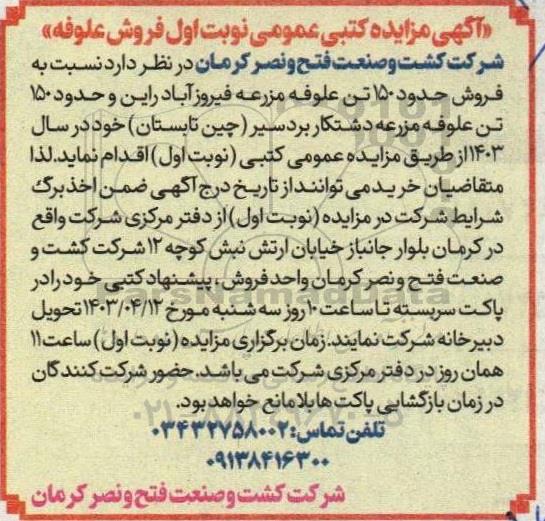 «آگهی مزایده کتبی عمومی نوبت اول فروش علوفه»
شرکت کشت و صنعت فتح و نصر کرمان در نظر دارد نسبت به
فروش حدود ۱۵۰ تن علوفه مزرعه فیروزآباد راین و حدود ۱۵۰
تن علوفه مزرعه دشتکار بردسیر (چین تابستان) خود در سال
۱۴۰۳ از طریق مزایده عمومی کتبی (نوبت اول) اقدام نماید. لذا
متقاضیان خرید می توانند از تاریخ درج آگهی ضمن اخذ برگ
شرایط شرکت در مزایده (نوبت اول) از دفتر مرکزی شرکت واقع
در کرمان بلوار جانباز خیابان ارتش نبش کوچه ۱۲ شرکت کشت و
صنعت فتح و نصر کرمان واحد فروش، پیشنهاد کتبی خود را در
پاکت سربسته تا ساعت ۱۰ روز سه شنبه مورخ ۱۴۰۳/۰۴/۱۲ تحویل
دبیرخانه شرکت نمایند. زمان برگزاری مزایده (نوبت اول) ساعت ۱۱
همان روز در دفتر مرکزی شرکت می باشد. حضور شرکت کنندگان
در زمان بازگشایی پاکت ها بلامانع خواهد بود.
تلفن تماس: ۰۳۴۳۲۷۵۸۰۰۲
۰۹۱۳۸۴۱۶۳۰۰
شرکت کشت و صنعت فتح و نصر کرمان
ParsNamadData